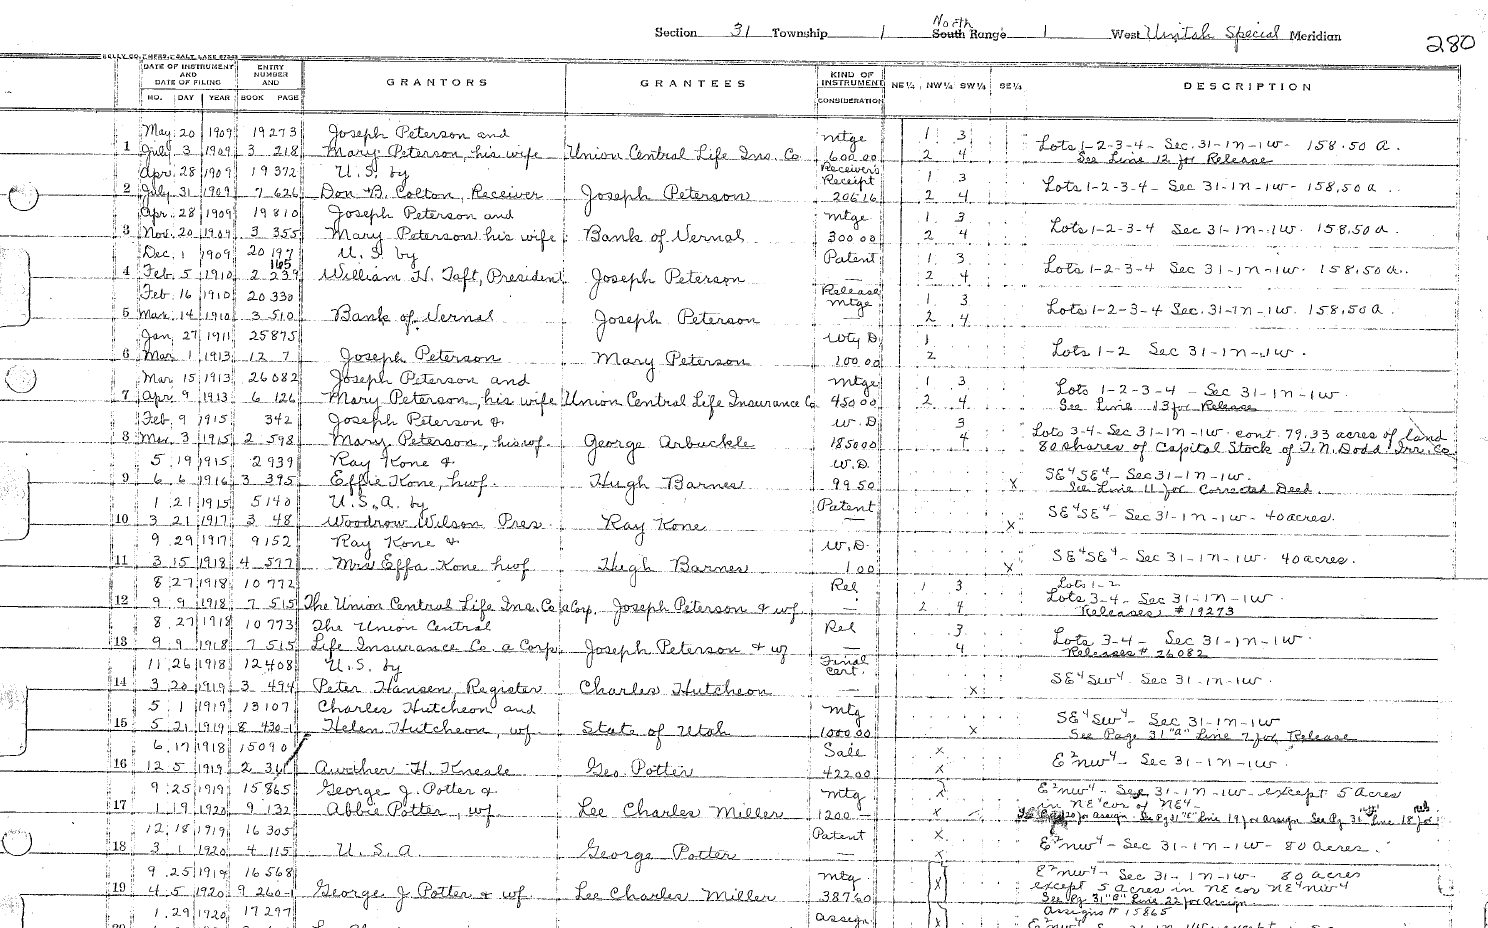 Section 31 Township 1 North South Range 1 West Uintah Special Meridian
280
DATE OF INSTRUMENT AND DATE OF FILING ENTRY NUMBER AND GRANTORS GRANTEES KIND OF INSTRUMENT NE¼ NW¼ SW¼ SE¼ DESCRIPTION
MO. DAY YEAR BOOK PAGE CONSIDERATION
May 20 1909 19273 Joseph Peterson and mtge 1 3 Lots 1-2-3-4- Sec. 31-1n-1w- 158.50 a.
1 July 3 1909 3 218 Mary Peterson, his wife Union Central Life Ins. Co 600.00 2 4 See Line 12 for Release
Apr. 28 1909 19372 U.S. by Receiver's Receipt 1 3 Lots 1-2-3-4- Sec 31-1n-1w- 158.50 a.
2 July 31 1909 7 626 Don B. Colton, Receiver Joseph Peterson 20616 2 4
Apr. 28 1909 19810 Joseph Peterson and mtge 1 3 Lots 1-2-3-4 Sec 31-1n-1w. 158.50 a.
3 Nov. 20 1909 3 355 Mary Peterson his wife Bank of Vernal 300 00 2 4
Dec. 1 1909 20197 U.S. by Patent 1 3 Lots 1-2-3-4 Sec 31-1n-1w. 158.50 a.
165
4 Feb. 5 1910 2 239 William H. Taft, President Joseph Peterson — 2 4
Feb. 16 1910 20330 Release mtge 1 3 Lots 1-2-3-4 Sec. 31-1n-1w. 158.50 a.
5 Mar. 14 1910 3 510 Bank of Vernal Joseph Peterson — 2 4
Jan. 27 1911 25875 Wty D. 1 Lots 1-2 Sec 31-1n-1w.
6 Mar. 1 1913 12 7 Joseph Peterson Mary Peterson 100.00 2
Mar. 15 1913 26082 Joseph Peterson and mtge 1 3 Lots 1-2-3-4 - Sec 31-1n-1w.
7 Apr. 9 1913 6 126 Mary Peterson, his wife Union Central Life Insurance Co 450 00 2 4 See Line 13 for Release
Feb. 9 1915 342 Joseph Peterson & W.D. 3 Lots 3-4-Sec 31-1n-1w. cont. 79.33 acres of land
8 Mar. 3 1915 2 598 Mary Peterson, his wf. George Arbuckle 1850 00 4 80 shares of Capital Stock of T.N. Dodd Irr. Co
5 19 1915 2939 Ray Kone & W.D. SE⁴SE⁴- Sec 31-1n-1w.
9 6 6 1916 3 395 Effie Kone, hwf. Hugh Barnes 99 50 x See Line 11 for Corrected Deed.
1 21 1915 5140 U.S.A. by Patent SE⁴SE⁴- Sec 31-1n-1w- 40 acres.
10 3 21 1917 3 48 Woodrow Wilson Pres Ray Kone — x
9 29 1917 9152 Ray Kone & W.D. SE⁴SE⁴- Sec 31-1n-1w. 40 acres.
11 3 15 1918 4 577 Mrs Effa Kone hwf Hugh Barnes 1.00 x
8 27 1918 10772 Rel 1 3 Lots 1-2
Lots 3-4- Sec 31-1n-1w.
12 9 9 1918 7 515 The Union Central Life Ins. Co a Corp. Joseph Peterson & wf — 2 4 Releases #19273
8 27 1918 10773 The Union Central Rel 3 Lots 3-4- Sec 31-1n-1w.
13 9 9 1918 7 515 Life Insurance Co a Corp. Joseph Peterson & wf — 4 Releases # 26082
11 26 1918 12408 U.S. by Final Cert. SE⁴SW⁴- Sec 31-1n-1w.
14 3 20 1919 3 494 Peter Hansen, Register Charles Hutcheon — x
5 1 1919 13107 Charles Hutcheon and mtg SE⁴SW⁴- Sec 31-1n-1w
15 5 21 1919 8 430-1 Helen Hutcheon, wf State of Utah 1000.00 x See Page 31 "A" Line 7 for Release
6 17 1918 15090 Sale x E²NW⁴- Sec 31-1n-1w.
16 12 5 1919 2 361 Awther H. Kneale Geo. Potter 422 00 x
9 25 1919 15865 George J. Potter & mtg x E²NW⁴- Sec 31-1n-1w- except 5 acres
in NE⁴ cor of NE⁴-
17 1 19 1920 9 132 Abbie Potter, wf Lee Charles Miller 1200 — x
12 18 1919 16305 Patent x E²NW⁴- Sec 31-1n-1w- 80 acres.
18 3 1 1920 4 115 U.S.A George Potter — x
9 25 1919 16568 mtg x E²NW⁴- Sec 31-1n-1w. 80 acres
except 5 acres in NE cor NE⁴NW⁴
19 4 5 1920 9 260-1 George J Potter & wf Lee Charles Miller 387.60 See Pg 31 Line 22 for Assign.
1 29 1920 17297 assign x Assigns # 15865